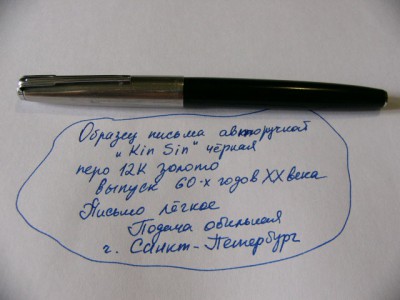 Образец письма авторучкой
„Kin Sin" чёрная
перо 12К золото
выпуск 60-х годов XX века
Письмо лёгкое
Подача обильная
г. Санкт-Петербург